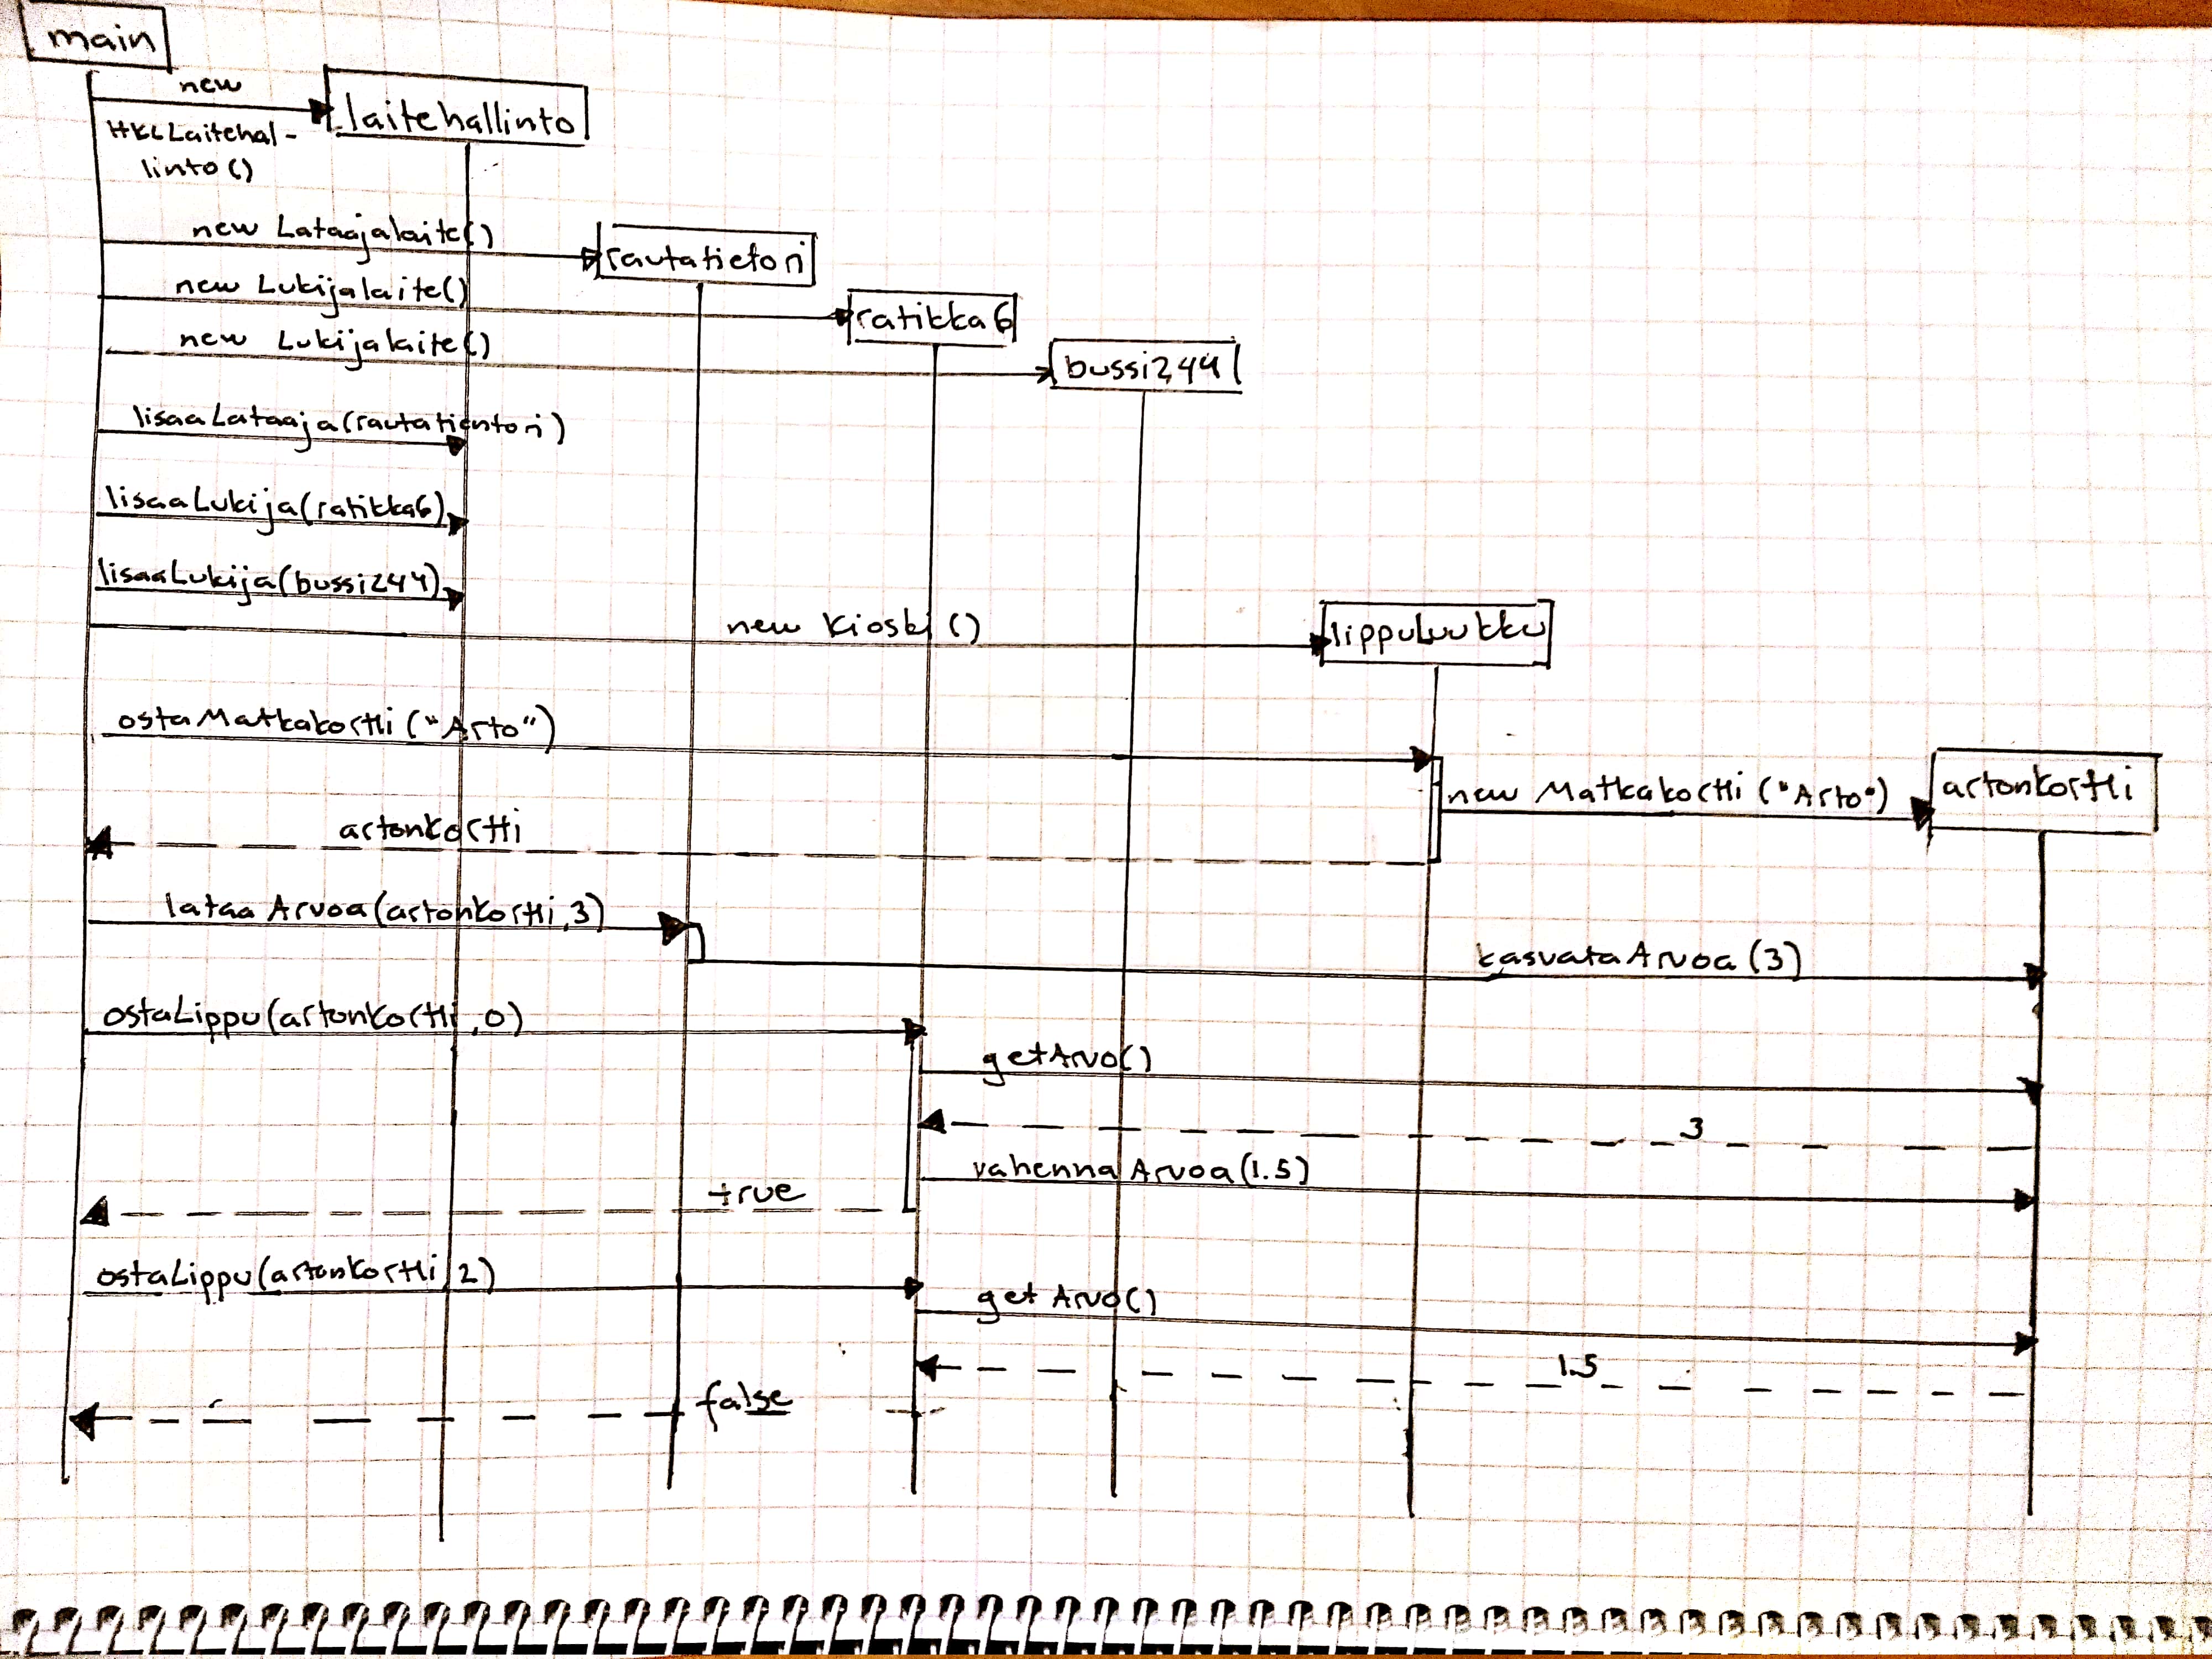 main
new
HKLLaitehal-
linto()
laitehallinto
new Lataajalaite()
rautatietori
new Lukijalaite()
ratikka6
new Lukijalaite()
bussi244
lisaaLataaja(rautatientori)
lisaaLukija(ratikka6)
lisaaLukija(bussi244)
new Kioski()
lippuluukku
ostaMatkakortti("Arto")
new Matkakortti("Arto")
artonkortti
artonkortti
lataaArvoa(artonkortti,3)
kasvataArvoa(3)
ostaLippu(artonkortti,0)
getArvo()
3
vahennaArvoa(1.5)
true
ostaLippu(artonkortti,2)
getArvo()
1.5
false